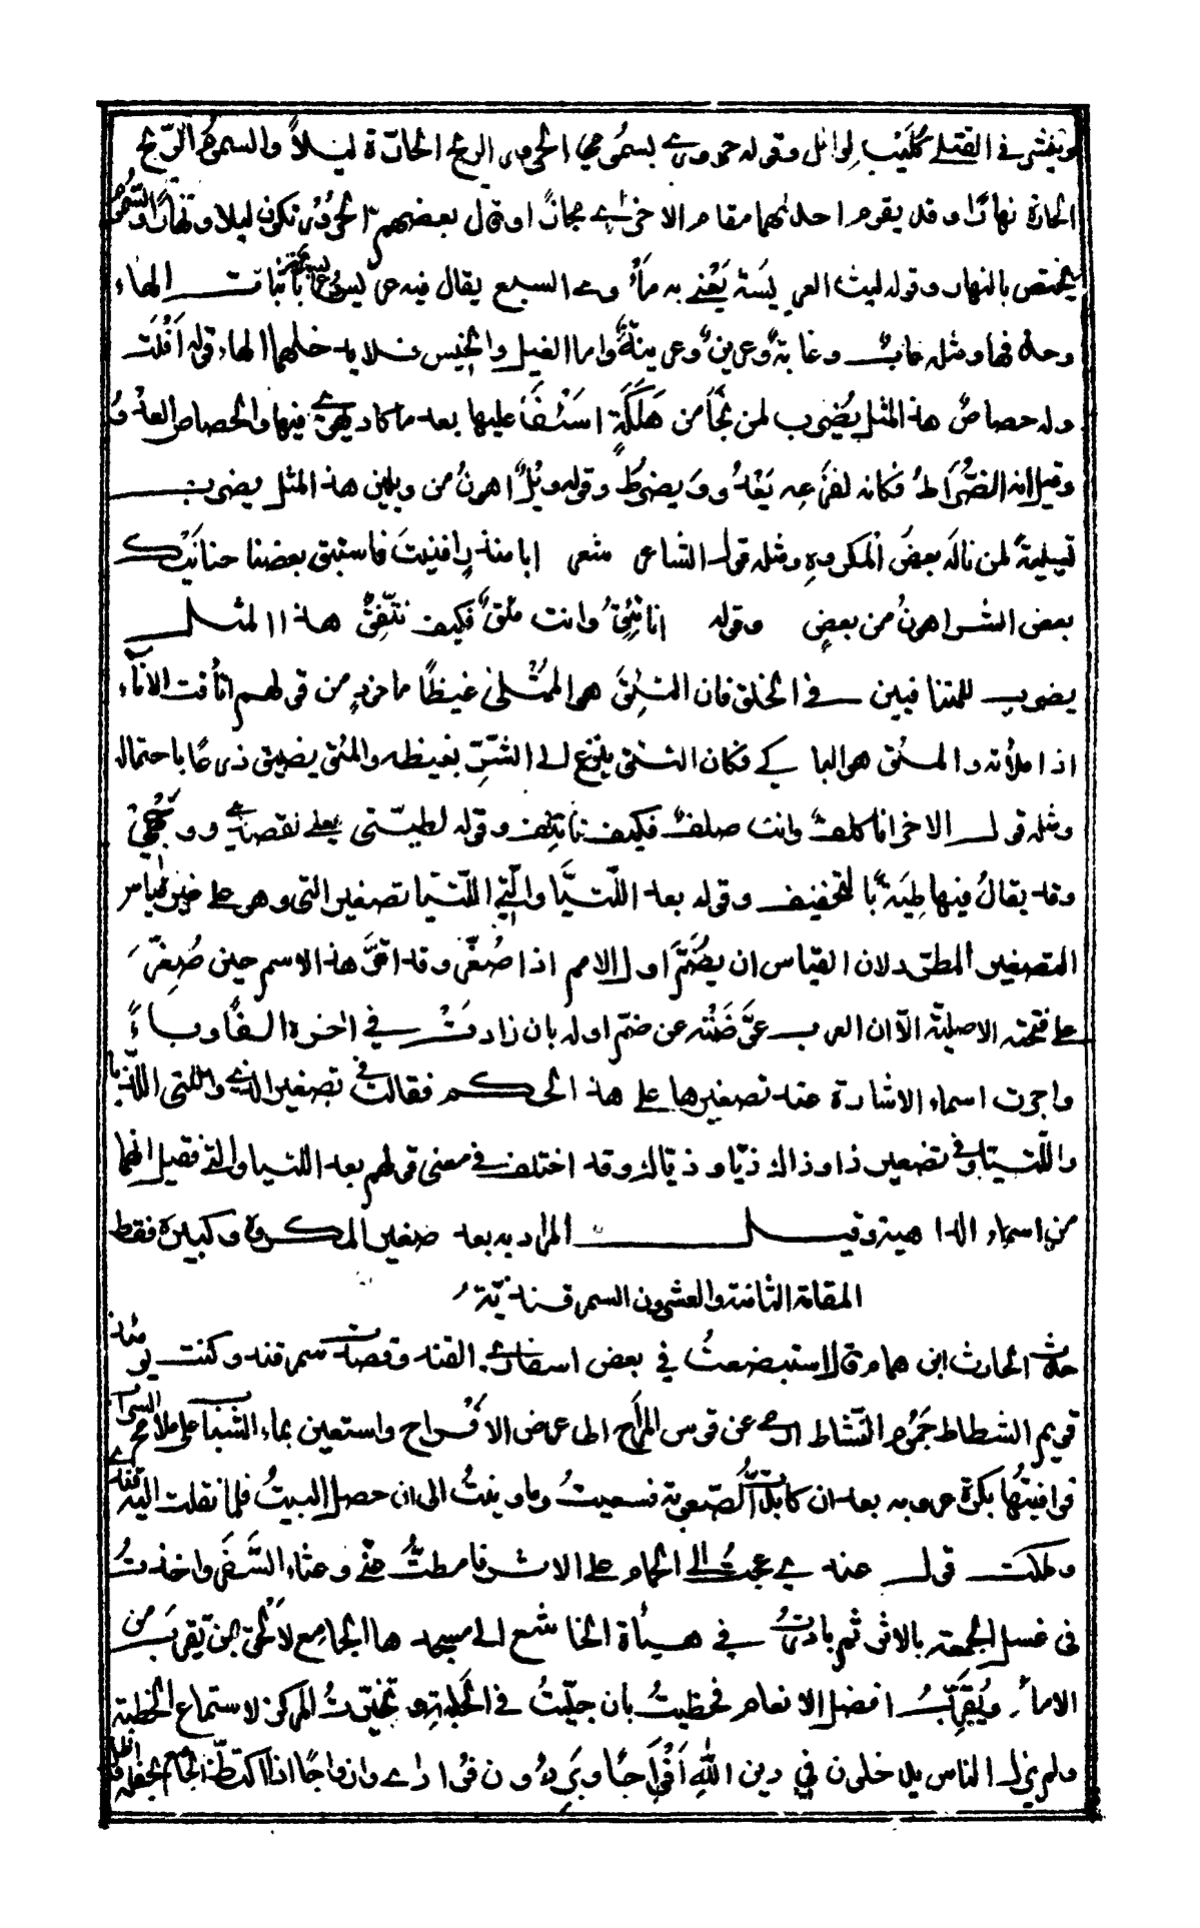 في القتلى كليب لوائل وقوله حروري بسموم الحرور الريح الحارة ليلا والسموم الريح
الحارة نهارا وقد يقوم احدهما مقام الاخرى مجازا وقال بعضهم الحرور تكون ليلا ونهارا والسموم
يختص بالنهار وقوله ليث العريسة يعني به مأوى السبع يقال فيه عريس وعريسة باثبات الهاء
وحذفها ومثله غاب وغابة وعرين وعرينة واما الغيل والخيس فلا يدخلهما الهاء قوله افلت
وله حصاص هذا المثل يضرب لمن نجا من هلكة اشفا عليها بعد ما كاد يهوي فيها والحصاص العدو
وقيل انه الضراط فكانه لفزعه يعدو ويضرط وقوله ويل اهون من ويلين هذا المثل يضرب
تسلية لمن ناله بعض المكروه ومثله قول الشاعر شعر ابا منذر افنيت فاستبق بعضنا حنانيك
بعض الشر اهون من بعض وقوله انا تئق وانت مئق فكيف نتفق هذا المثل
يضرب للمتنافيين في الخلق فان التئق هو الممتلئ غيظا ماخوذ من قولهم اتأقت الاناء
اذا ملأته والمئق هو الباكي فكان التئق ينزع الى الشر بغيظه والمئق يضيق ذرعا باحتماله
ومثله قول الاخر انا كلف وانت صلف فكيف نأتلف وقوله لطيتي يعني لقصدي ووجهتي
وقد يقال فيها طية بالتخفيف وقوله بعد اللتيا والتي اللتيا تصغير التي وهو على غير قياس
التصغير المطرد لان القياس ان يضم اول الاسم اذا صغر وقد اقر هذا الاسم حين صغر
على فتحته الاصلية الا ان العرب عوضته عن ضم اوله بان زادت في اخره الفا وباء
واجرت اسماء الاشارة عند تصغيرها على هذا الحكم فقالت في تصغير الذي والتي اللذيا
واللتيا وفي تصغير ذا وذاك ذيا وذياك وقد اختلف في معنى قولهم بعد اللتيا والتي فقيل انهما
من اسماء الداهية وقيل المراد به بعد صغير المكروه وكبيره فقط
المقامة الثامنة والعشرون السمرقندية
حدث الحارث ابن همام قال استبضعت في بعض اسفاري القند وقصدت سمرقند وكنت يومئذ
قويم الشطاط جموم النشاط ارمي عن قوس المراح الى غرض الافراح واستعين بماء الشباب على ملامح السراب
فوافيتها بكرة عروبة بعد ان كابدت الصعوبة فسعيت وما ونيت الى ان حصل البيت فلما نقلت اليه قندي
وملكت قول عندي عجت الى الحمام على الاثر فامطت عني وعثاء السفر واخذت
في غسل الجمعة بالاثر ثم بادرت في هيأة الخاشع الى مسجدها الجامع لالحق بمن يقرب من
الامام ويقرب افضل الانعام فحظيت بان جليت في الحلبة وتخيرت المركز لاستماع الخطبة
ولم يزل الناس يدخلون في دين الله افواجا ويردون فرادى وازواجا اذا اكتظ الجامع بحفله